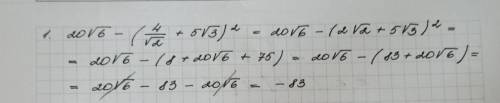 1. 20√6 - (4/√2 + 5√3)² = 20√6 - (2√2 + 5√3)² =
= 20√6 - (8 + 20√6 + 75) = 20√6 - (83 + 20√6) =
= 20√6 - 83 - 20√6 = -83